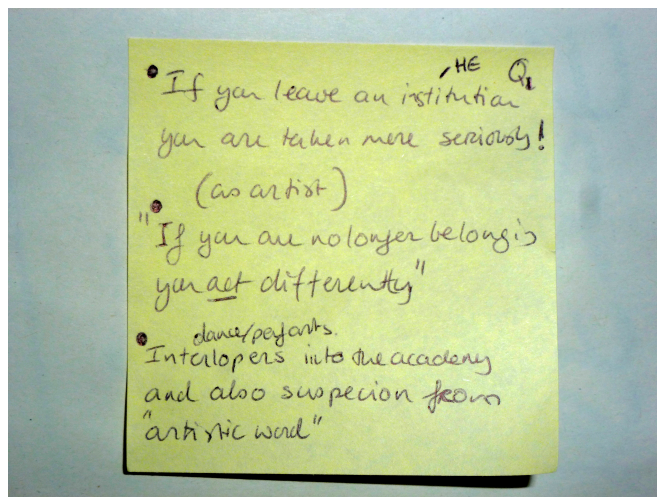 HE Q1
• If you leave an institution
you are taken more seriously!
(as artist)
• "If you are no longer belonging
you act differently"
dance/perf arts.
• Interlopers into the academy
and also suspecion from
"artistic word"